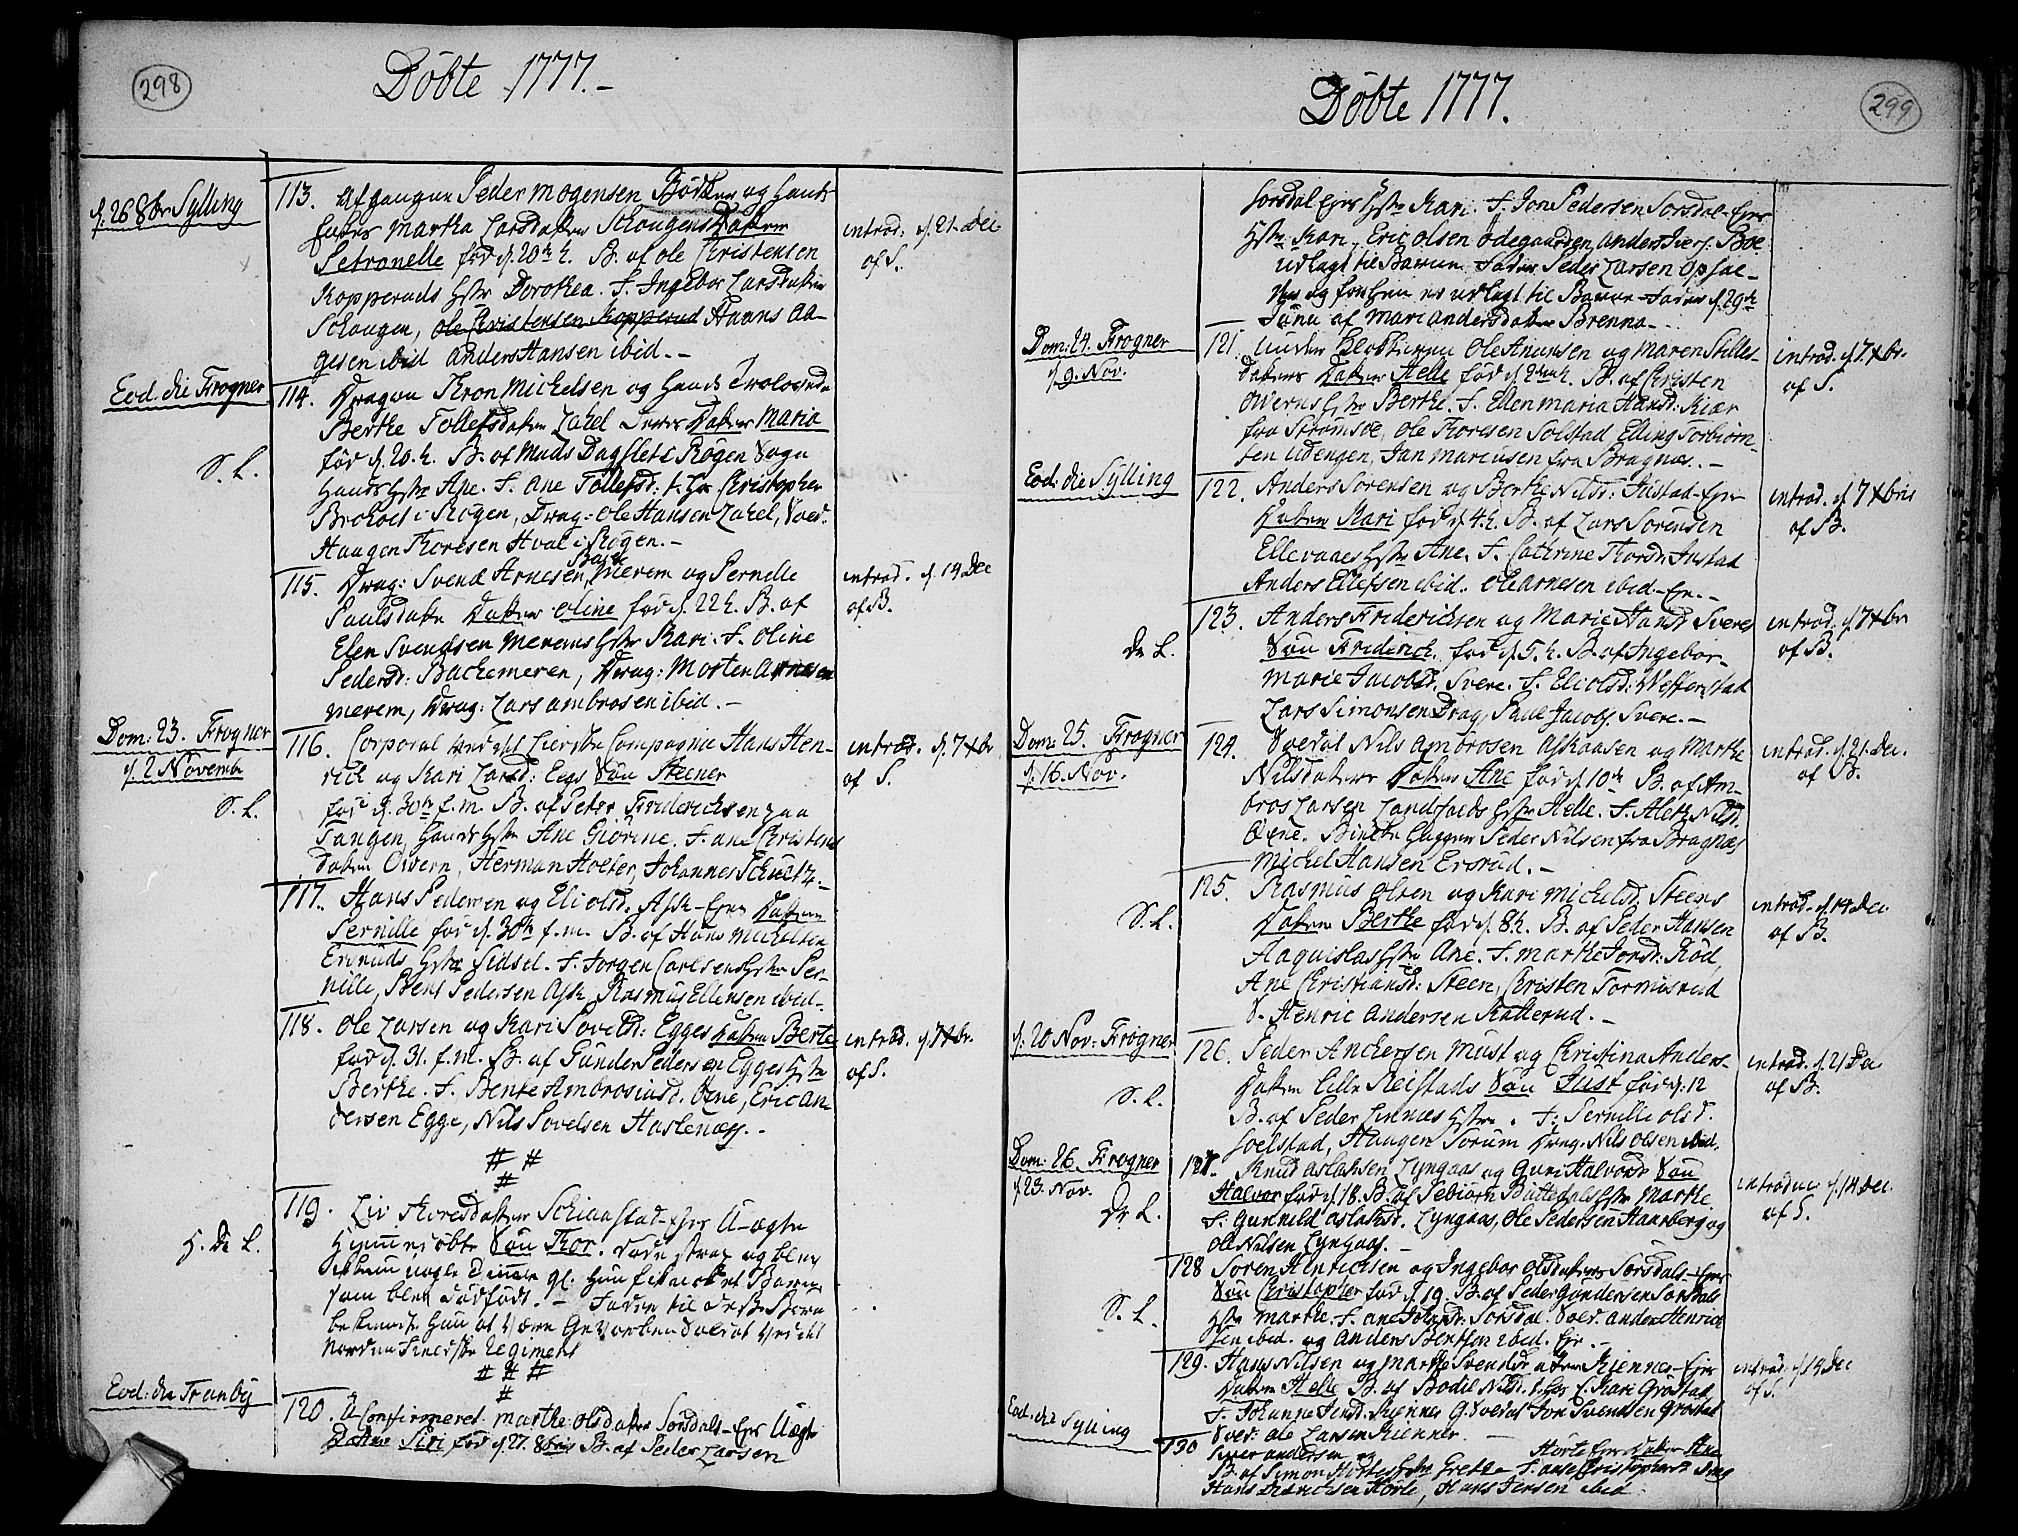 298
Döbte 1777.-
d. 26 8br Sylling
113. Afgangne Peder Mogensen Bödker og hands
Enkes Martha Larsdatter Schougens Datter
Petronelle föd d. 20de h. B. af Ole Christensen
Kopperuds Hstr Dorothea. F. Ingebor Larsdatter
Schougen, Ole Christensen Kopperud Haans Aa-
gesen ibid Anders Hansen ibid.-
introd: d. 21. Dec
af S.
Eod. die Frogner
S. L.
114. Dragon Thron Michelsen og hands Trolovede
Berthe Tollefsdatter Lahel Deres Datter Maria
föd d. 20. h. B. af Mads Dagslet i Rögen Sogn
hands Hstr Ane. F. Ane Tollefsd: t. hos Christopher
Broholt i Rögen, Drag: Ole Hansen Lahel, Sold.
Haagen Thoresen Hval i Rögen.-
115. Drag: Svend Arnesen Bache merem og Pernelle
Paulsdatter Datter Oline föd d. 22 h. B. af
Elen Svendsen Merems Hstr Kari. F. Oline
Pedersd: Bachemeren, Drag: Morten Arnesen
merem, Drag: Lars Ambrosen ibid.-
introd. d. 14 Dec
af B.
Dom: 23. Frogner
d. 2 Novemb
S. L.
116. Corporal ved det Lierske Compagnie Hans Hen-
rich og Kari Larsd: Eegs Sön Steener
föd d. 30te f. m. B. af Peter Friderichsen paa
Tangen, hands Hstr Ane Giörine. F. Ane Christens
datter Overn, Herman Holter, Johannes Schultz.-
introd. d. 7 Xbr
af S.
117. Hans Pedersen og Eli Olsd. Ask-Eyer Datter
Pernille föd d. 30te f. m. B. af Hans Michelsen
Ersruds Hstr Sidsel. F. Jorgen Carlsens Hstr Per-
nille, Bent Pedersen Ask, Rasmus Ellensen ibid.-
118. Ole Larsen og Kari Sovelsd: Egges Datter Berte
föd d. 31. f. m. B. af Gunder Pedersen Egges Hstr
Berthe. F. Bente Ambrosiusd. Oxne, Eric An-
dersen Egge, Nils Sovelsen Haslenæss.-
introd. d. 7 Xbr.
af S.
# #
#
H. D. L.
119. Liv Thoresdatter Schiaastad-Eyer U-ægte
Hiemmedöbte Sön Thor. döde strax og blev
som blev Dödfödt.- Faderen til dette Barn
bekiendte hun at være Gevorben Soldat ved det
Nordenfieldske Regiment
# # #
#
Eod: die Tranby
120. UConfirmeret Marthe Olsdatter Sorsdals-Eyer Uægte
Datter Siri föd d. 27. 8bris B. af Peder Larsen
299
Döbte 1777.
Sorsdal Eyes Hstr Kari. F. Jon Pedersen Sorsdal-Eyes
Hstr Kari, Eric Olsen Ödegaarden, Anders Ivers. Boe
udlagt til Barne Fader Peder Larsen Opsae-
Junii af Mari Andersdatter Brenna-
Dom: 24. Frogner
d. 9. Nov.
121. Ole Anunsen og Maren Stilles-
datters Datter Helle föd d. 2den h. B. af Christen
Overns Hstr Berthe. F. Ellen Maria Hansd: Kiær
fra Strömsöe, Ole Thoresen Solstad, Elling Torbiörn-
sen Udengen, Jan Marcusen fra Bragnæs.-
introd. d. 7. Xbr.
af S.
Eod: die Sylling
122. Anders Sorensen og Berthe Nilsd: Justad-Eyer
Datter Kari föd d. 4. h. B. af Lars Sorensen
Ellevaaes Hstr Ane. F. Cathrine Thordr. Justad
Anders Ellefsen ibid. Ole Arnesen ibid-Ey.-
introd. d. 7 Xbris
af B.
Dr L.
123. Anders Friderichsen og Marie Hansd Svere
Sön Friderich. föd d. 5. h. B. af Ingebor-
Marie Jacobsd. Svere. F. Eli Olsd: Weffenstad
Lars Simonsen Drag, Paul Jacobs. Svere.-
introd. d. 7 Xbr
af B.
Dom: 25. Frogner
d. 16. Nov.
124. Soldat Nils Ambrosen Askaasen og Marthe
Nilsdatters Datter Ane föd d. 10de B. af Am-
bros Larsen Landfalds Hstr Helle. F. Aleth Nilsd.
Oxne. Peder Nilsen fra Bragnæs
Michel Hansen Ersrud.-
introd. d. 21. Dec.
af B.
S. L.
125. Rasmus Olsen og Kari Michelsd. Steens
Datter Berthe föd d. 8 h. B. af Peder Hansen
Haquislas Hstr Ane. F. Marthe Jonsd: Röd,
Ane Christiansd: Steen, Christen Tormisrud
S. Henric Andersen Kattterud.-
introd. d. 14 Dec.
af B.
d. 20 Nov: Frogner
S. L.
126. Peder Anchersen Must og Christina Anders-
datter Lille Reistads Sön Just föd d: 12
B. af Peder Linnæs Hstr. F: Pernille Olsd.
Soelstad, Haagen Sorum Drag. Nils Olsen ibid.
introd. d. 21 Dec
af B.
Dom: 26. Frogner
d. 23. Nov.
Dr L.
127. Knud Aslaksen Lyngaas og Guri Halvorsd Sön
Halvor föd d. 18. B. af Sebiörn Buttedals Hstr Marthe.
F. Gunnild Aslaksd. Lyngaas, Ole Pedersen Haaberg og
Ole Nilsen Lyngaas.-
introducr. d. 14 Dec.
af S.
S. L.
128 Sören Henrichsen og Ingebor Olsdatters Sorsdals-Eyes
Sön Christopher föd d. 19. B. af Peder Gundersen Sorsdals
Hstr Marthe. F. Ane Johansd: Sorsdal. Sold. Anders Henrich
sen ibid. og Anders Bentsen ibid. Eye.-
129. Hans Nilsen og Marthe Svendsdatter Kiennes-Eyes
Datter Helle B. af Bodil Nilsd. t. hos C. Kari Gröstad
F. Johanne Jensd: Kiennes G. Soldat Jon Svendsen Gröstad
Sold. Ole Larsen Kienner.
introd. d. 14 Dec
af S.
Eod: die Sylling
130 Iver Andersen og Hörte Eyes Datter Ane
B. af Simon Hörtes Hstr Grethe F. Ane Christophersd Drag
Hans Diderichsen Hörte, Hans Jensen ibid